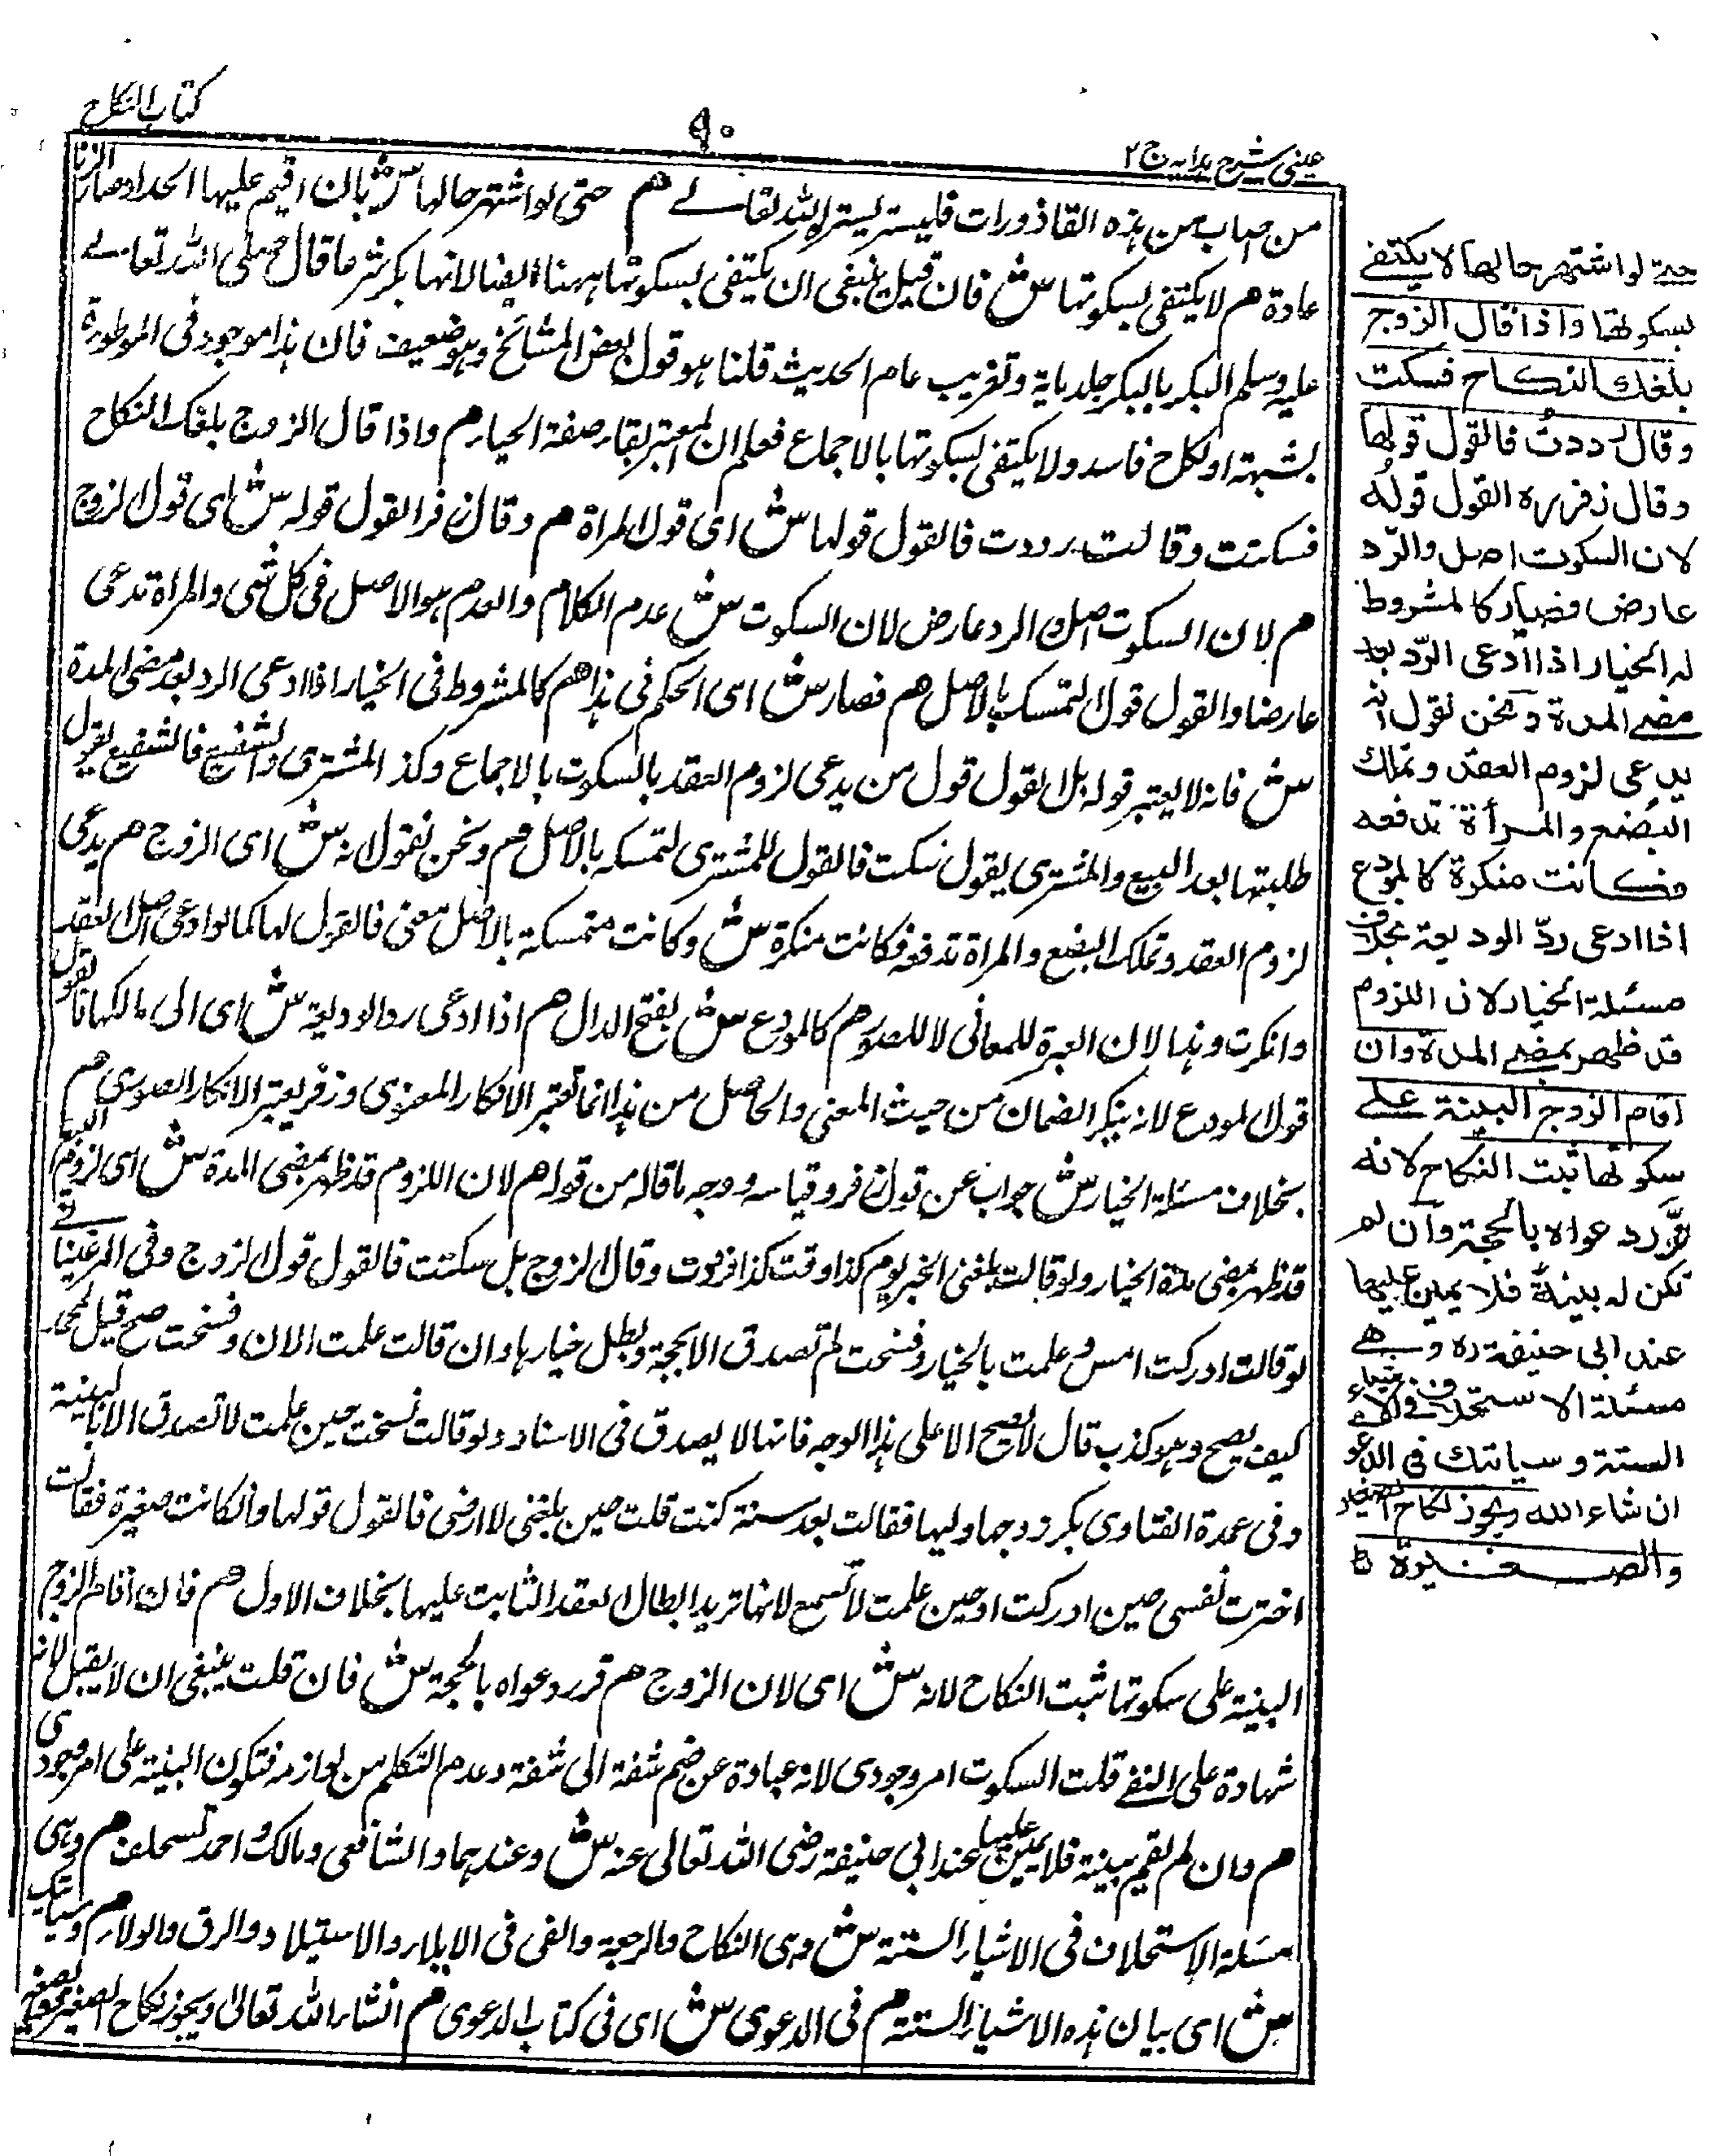 كتاب النكاح
٩٠
عینی شرح ہدایہ ج ٢
من اصاب من ہذہ القاذورات فلیستتر بستر اللہ تعالے ھم حتی لو اشتهر حالہا ش بان اقیم علیہا الحد او صار الزنا
عادة ھم لا یکتفی بسکوتها ش فان قیل ینبغی ان یکتفی بسکوتها ہہنا ایضا لانہا بکر شرعا قال صلی اللہ تعالے
علیہ وسلم البکر بالبکر جلد مایة وتغریب عام الحدیث قلنا ہو قول بعض المشائخ وہو ضعیف فان ہذا موجود فی الموطورة
بشبہة او نکاح فاسد ولا یکتفی بسکوتها بالاجماع فعلم ان المعتبر بقاء صفة الحیاء م واذا قال الزوج بلغک النکاح
فسکتت وقالت رددت فالقول قولها ش ای قول المراة م وقال زفر القول قولہ ش ای قول الزوج
م لان السکوت اصل والرد عارض لان السکوت ش عدم الکلام والعدم ہو الاصل فی کل شی والمراة تدعی
عارضا والقول قول المتمسک بالاصل ھم فصار ش ای الحکم فی ہذا ھم کالمشروط فی الخیار اذا ادعی الرد بعد مضی المدة
ش فانہ لا یعتبر قولہ بل القول قول من یدعی لزوم العقد بالسکوت بالاجماع وکذا المشتری والشفیع فالشفیع یقول
طلبتها بعد البیع والمشتری یقول سکت فالقول للمشتری لتمسکہ بالاصل ھم ونحن نقول لانہ ش ای الزوج ھم یدعی
لزوم العقد وتملک البضع والمراة تدفعہ فکانت منکرة ش وکانت متمسکة بالاصل معنی فالقول لها کما لو ادعی اصل العقد
وانکرت وہذا لان العبرة للمعانی لا للصور ھم کالمودع ش بفتح الدال ھم اذا ادعی رد الودیعة ش ای الی مالکها فالقول
قول المودع لانہ ینکر الضمان من حیث المعنی والحاصل من ہذا انا نعتبر الانکار المعنوی وزفر یعتبر الانکار الصوری ھم
بخلاف مسئلة الخیار ش جواب عن قول زفر وقیاسہ ووجہ ما قالہ من قولہ ھم لان اللزوم قد ظهر بمضی المدة ش ای لزوم البیع
قد ظهر بمضی مدة الخیار ولو قالت بلغنی الخبر یوم کذا وقت کذا فرددت وقال الزوج بل سکتت فالقول قول الزوج وفی المرغینانی
لو قالت ادرکت امس وعلمت بالخیار وفسخت لم تصدق الا بحجة وبطل خیارہا وان قالت علمت الان وفسخت صح قیل لمحمد
کیف یصح وہو کذب قال لا یصح الا علی ہذا الوجہ فانها لا یصدق فی الاسناد ولو قالت فسخت حین علمت لا تصدق الا بالبینة
وفی عمدة الفتاوی بکر زوجها ولیها فقالت بعد سنة کنت قلت حین بلغنی لا ارضی فالقول قولها وان کانت صغیرة فقالت
اخترت نفسی حین ادرکت او حین علمت لا تسمع لانها ترید ابطال العقد الثابت علیها بخلاف الاول ھم فان اقام الزوج
البینة علی سکوتها ثبت النکاح لانہ ش ای لان الزوج ھم قرر دعواہ بالحجة ش فان قلت ینبغی ان لا یقبل لانہ
شهادة علی النفے قلت السکوت امر وجودی لانہ عبارة عن ضم شفة الی شفة وعدم التکلم من لوازمہ فتکون البینة علی امر وجودی
م وان لم تقم بینة فلا یمین علیها عند ابی حنیفة رضی اللہ تعالی عنہ ش وعندہما والشافعی ومالک واحمد تستحلف م وہی
مسئلة الاستحلاف فی الاشیاء الستة ش وہی النکاح والرجعة والفی فی الایلاء والاستیلاد والرق والولاء م وسیاتیک
ش ای بیان ہذہ الاشیاء الستة م فی الدعوی ش ای فی کتاب الدعوی م انشاء اللہ تعالی ویجوز نکاح الصغیر والصغیرة
حتے لو اشتهر حالها لا یکتفے
بسکوتها واذا قال الزوج
بلغک النکاح فسکت
وقال رددت فالقول قولها
وقال زفر رہ القول قولُه
لان السکوت اصل والرّد
عارض فصار کالمشروط
لہ الخیار اذا ادعی الرّد بعد
مضے المدة ونحن نقول انہ
یدعی لزوم العقد وتملک
البُضع والمرأة تدفعہ
فکانت منکرة کالمودع
اذا ادعی ردّ الودیعة بخلاف
مسئلة الخیار لان اللزوم
قد ظهر بمضے المدة وان
اقام الزوج البینة علے
سکوتها ثبت النکاح لانہ
قرّر دعواہ بالحجة وان لم
تکن لہ بینةٌ فلا یمین علیها
عند ابی حنیفة رہ وہے
مسئلة الاستحلاف فے الاشیاء
الستة وسیاتیک فی الدعوی
ان شاء اللہ ویجوز نکاح الصغیر
والصغیرة